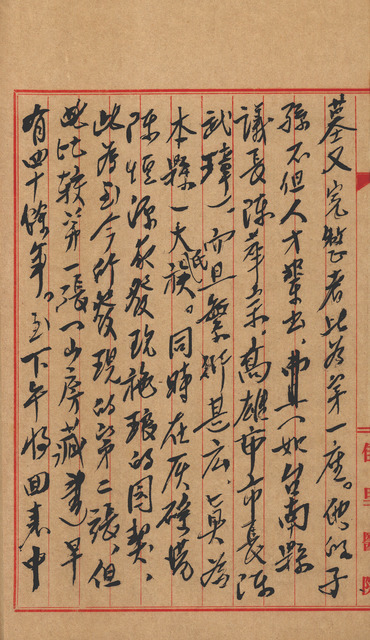 墓又完整者此為第一座。他的子
孫不但人才輩出,如台南縣
議長陳華宗、高雄市市長陳
武璋、而且繁衍甚広、真為
本縣一大民族。同時在灰磘塲
陳恒源家發現施琅的因契、
此為至今所發現的第二張、但
此比較第一張山房藏早
有四十餘年。至下午將回來中
佳里醫院